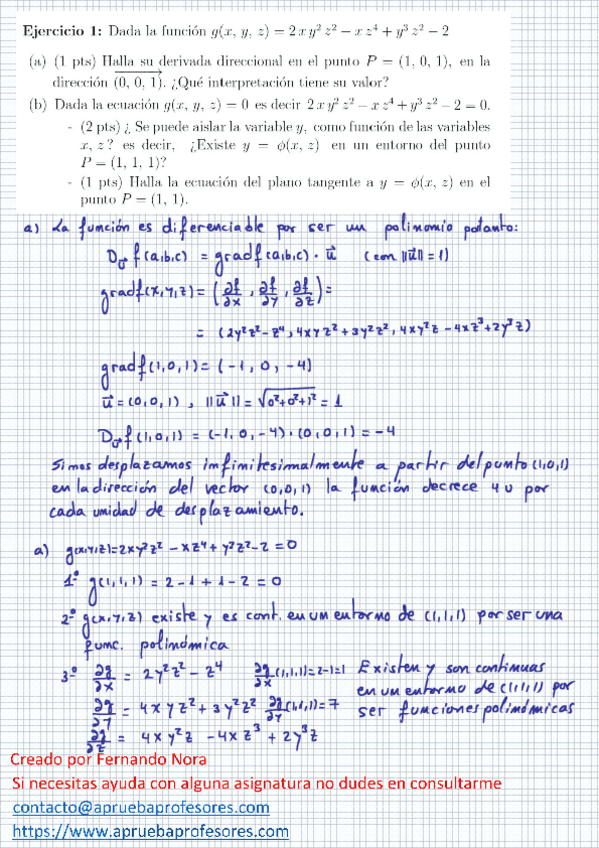 Ejercicio 1: Dada la función g(x, y, z) = 2 x y² z² − x z⁴ + y³ z² − 2
(a) (1 pts) Halla su derivada direccional en el punto P = (1, 0, 1), en la
dirección (0, 0, 1). ¿Qué interpretación tiene su valor?
(b) Dada la ecuación g(x, y, z) = 0 es decir 2 x y² z² − x z⁴ + y³ z² − 2 = 0.
- (2 pts) ¿ Se puede aislar la variable y, como función de las variables
x, z ? es decir, ¿Existe y = ϕ(x, z) en un entorno del punto
P = (1, 1, 1)?
- (1 pts) Halla la ecuación del plano tangente a y = ϕ(x, z) en el
punto P = (1, 1).
a) La función es diferenciable por ser un polinomio potanto:
D_u⃗ f(a,b,c) = grad f(a,b,c) · u⃗ (con ||u⃗|| = 1)
grad f(x,y,z) = (∂f/∂x , ∂f/∂y , ∂f/∂z) =
= (2y²z²-z⁴, 4xyz²+3y²z², 4xy²z-4xz³+2y³z)
grad f(1,0,1) = (-1, 0, -4)
u⃗ = (0,0,1) , ||u⃗|| = √0²+0²+1² = 1
D_u⃗ f(1,0,1) = (-1,0,-4)·(0,0,1) = -4
Si nos desplazamos infinitesimalmente a partir del punto (1,0,1)
en la dirección del vector (0,0,1) la función decrece 4 u por
cada unidad de desplazamiento.
a) g(x,y,z)=2xy²z² - xz⁴ + y³z²-2 = 0
1º g(1,1,1) = 2-1+1-2 = 0
2º g(x,y,z) existe y es cont. en un entorno de (1,1,1) por ser una
func. polinómica
3º ∂g/∂x = 2y²z² - z⁴ ∂g/∂x (1,1,1)=2-1=1 Existen y son continuas
∂g/∂y = 4xyz²+3y²z² ∂g/∂y (1,1,1)=7 en un entorno de (1,1,1) por
ser funciones polinómicas
∂g/∂z = 4xy²z -4xz³ + 2y³z
Creado por Fernando Nora
Si necesitas ayuda con alguna asignatura no dudes en consultarme
contacto@apruebaprofesores.com
https://www.apruebaprofesores.com